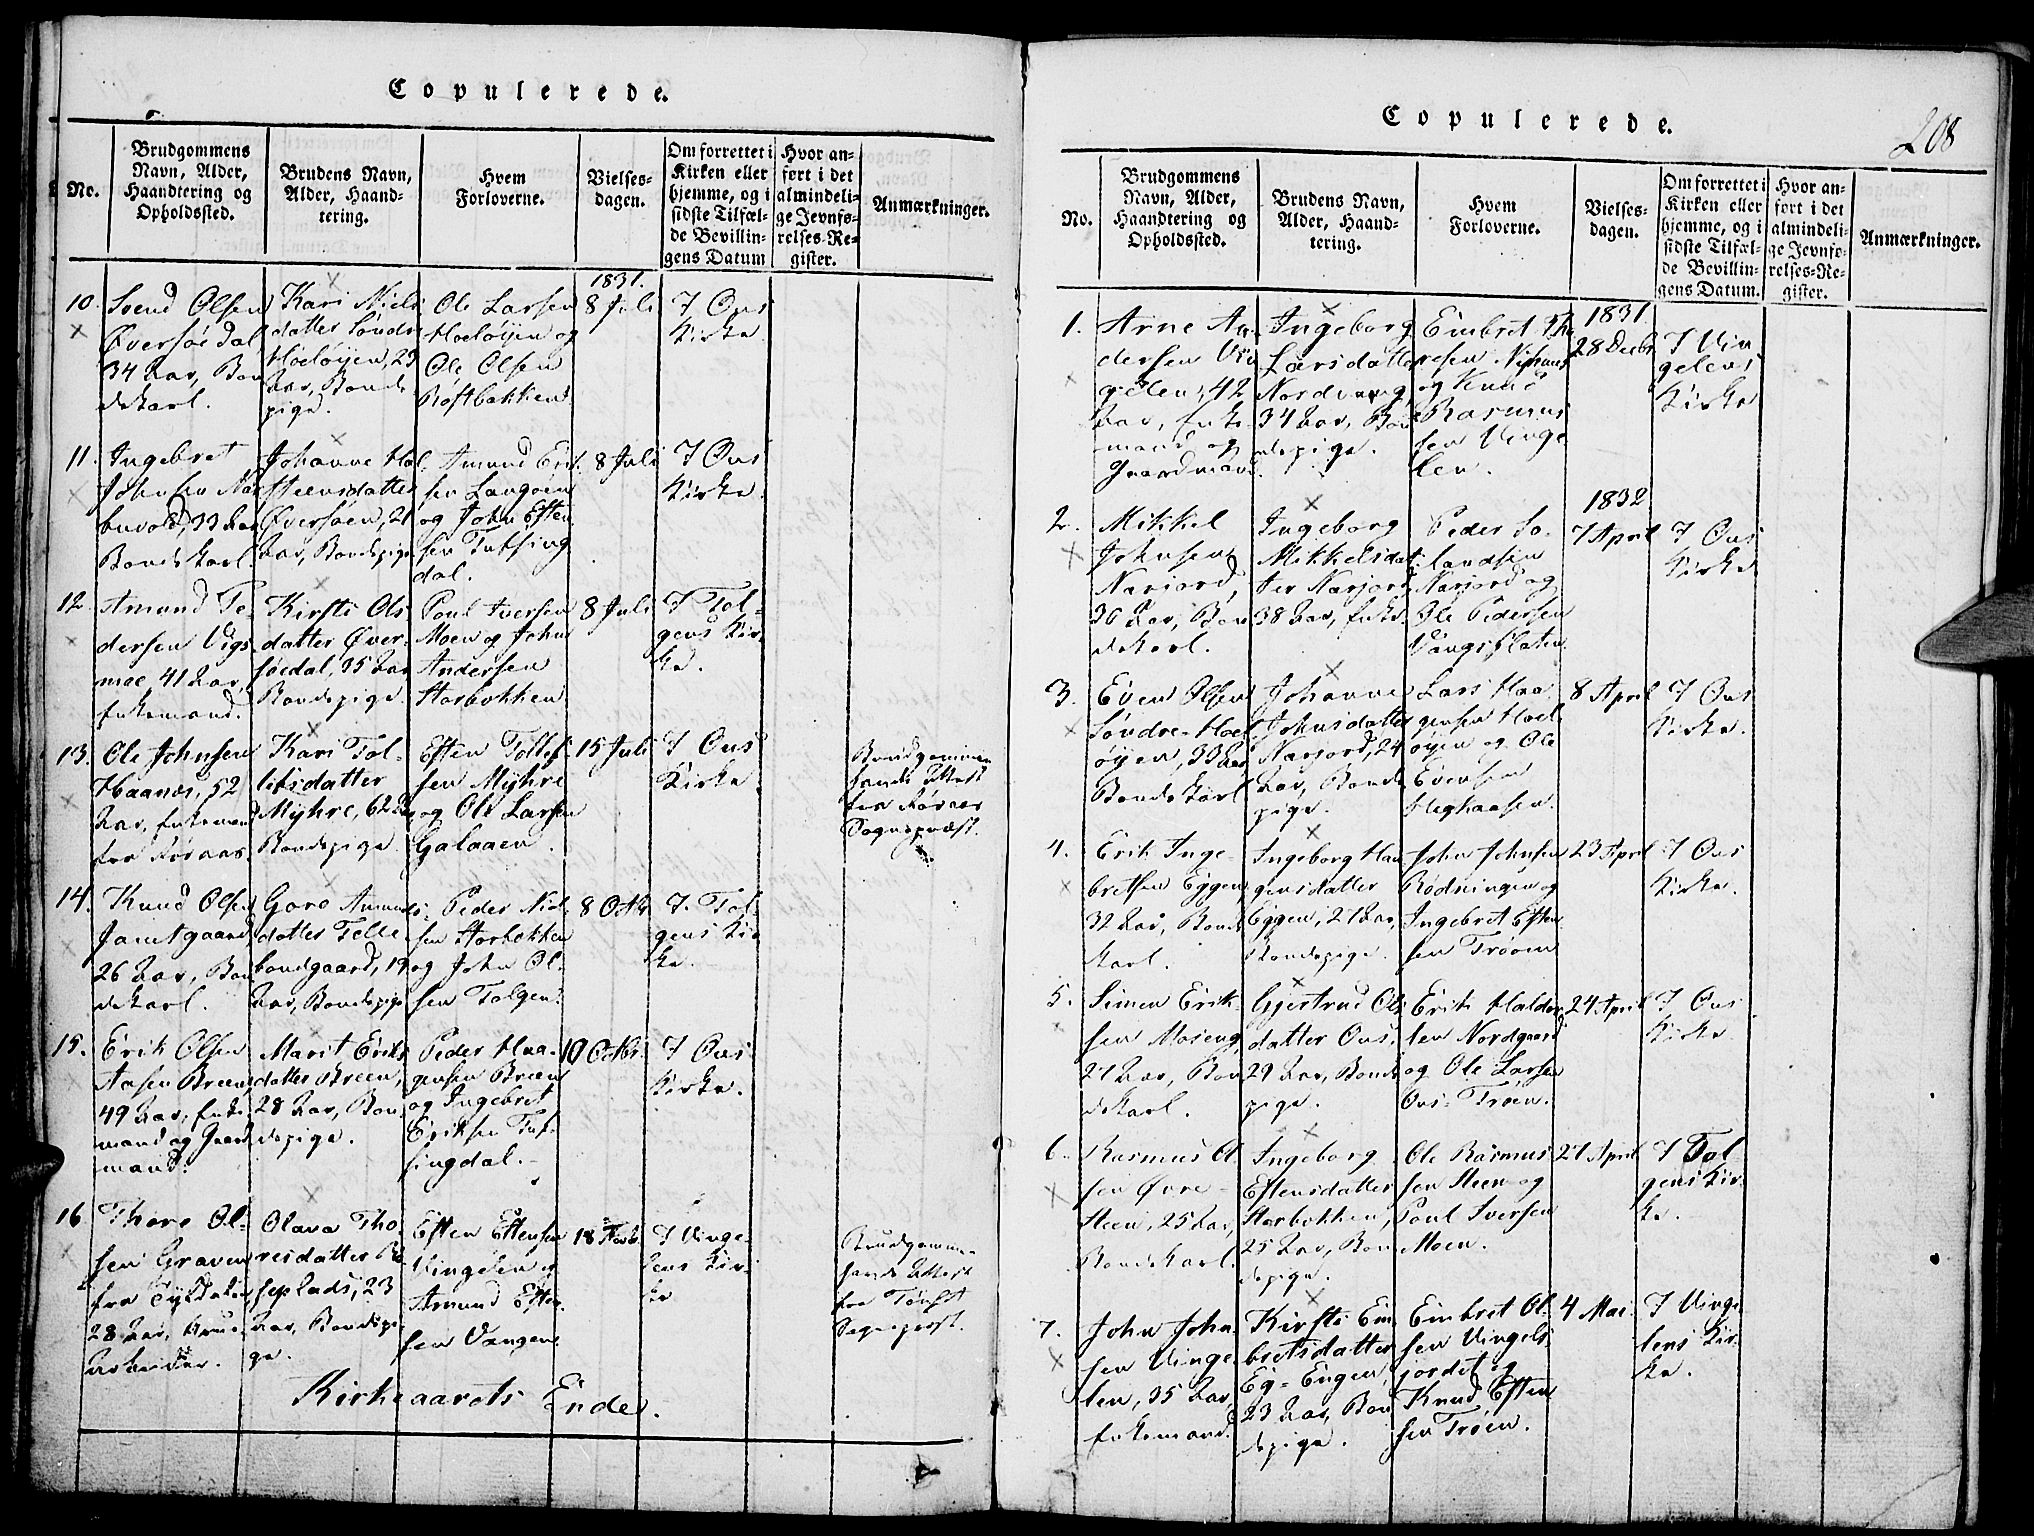 Copulerede.
No.
Brudgommens
Navn, Alder,
Haandtering og
Opholdssted.
Brudens Navn,
Alder, Haand-
tering.
Hvem
Forloverne.
Vielses-
dagen.
Om forrettet i
Kirken eller
hjemme, og i
sidste Tilfæl-
de Bevillin-
gens Datum
Hvor an-
ført i det
almindeli-
ge Jevnfø-
relses-Re-
gister.
Anmærkninger.
1831.
10.
Svend Olsen
Øversøedal
34 Aar, Bon
dekarl.
Kari Niels
datter Søndr
Hoeløyen, 23
Aar, Bonde
pige.
Ole Larsen
Hoeløyen og
Ole Olsen
Røstbakken
8 Juli
I Ous
Kirke
11.
Ingebret
Johnsen Nar
buvold, 33 Aar
Bondekarl.
Johanne Hol
steensdatter
Øversøen, 21
Aar, Bondepige
Amund Erik
sen Langøen
og John Esten
sen Tufsing
dal.
8 Juli
I Ous
Kirke.
12.
Amund Pe-
dersen Vigs
moe, 41 Aar,
Enkemand.
Kirsti Ols
datter Øver-
søedal, 35 Aar
Bondepige.
Poul Iversen
Moen og John
Andersen
Storbekken
8 Juli
I Tol-
gens Kir-
ke.
13.
Ole Johnsen
Haanæs, 52
Aar, Enkemand
fra Røraas.
Kari Tol-
lefsdatter
Myhre, 62 Aar
Bondepige
Esten Tollef-
sen Myhre
og Ole Larsen
Galaaen.
15 Juli
I Ous
Kirke
Brudgommen
havde Attest
fra Røraas
Sognepræst.
14.
Knud Olsen
Jamtgaard
26 Aar, Bon
dekarl.
Goro Amunds
datter Telle
bondgaard, 19
Aar, Bondepige
Peder Niel
sen Storbekken
og John Ol-
sen Tolgen.
8 Octbr
I Tol-
gens Kir
ke.
15.
Erik Olsen
Aasen Breen,
49 Aar, Enke
mand og Gaard
mand.
Marit Eriks
datter Breen,
28 Aar, Bon
depige.
Peder Haa-
gensen Breen
og Ingebret
Eriksen Tuf-
singdal.
10 Octbr.
I Ous
Kirke.
16.
Thore Ol-
sen Graven
fra Tyldalen
28 Aar,
arbeider.
Olava Tho
resdatter
seplads, 23
Aar, Bondepi-
ge.
Esten Estensen
Vingelen og
Amund Esten
sen Vangen
18
I Vinge-
lens Kir-
ke
Brudgommen
havde Attest
fra Tønset
Sognepræst.
Kirkeaarets Ende.
Copulerede.
208
No.
Brudgommens
Navn, Alder,
Haandtering og
Opholdssted.
Brudens Navn,
Alder, Haand-
tering.
Hvem
Forloverne.
Vielses-
dagen.
Om forrettet i
Kirken eller
hjemme, og i
sidste Tilfæl-
de Bevillin-
gens Datum.
Hvor an-
ført i det
almindeli-
ge Jevnfø-
relses-Re-
gister.
Anmærkninger.
1831.
1.
Arne An-
dersen Vin
gelen, 42
Aar, Enke-
mand og
Gaardmand.
Ingeborg
Larsdatter
Nordvang,
34 Aar, Bon
depige.
Embret Tho
resen
og Knud
Rasmus
sen Vinge
len.
28 Decbr
I Vin
gelens
Kirke
1832
2.
Mikkel
Johnsen
Narjord,
36 Aar, Bon
dekarl.
Ingeborg
Mikkelsdat
ter Narjord
38 Aar, Enke.
Peder Jo-
landsen
Narjord og
Ole Pedersen
Vangsfloten
7 April
I Ous
Kirke
3.
Even Olsen
Søndre-Hoel
øyen, 33 Aar
Bondekarl
Johanne
Johnsdatter
Narjord, 24
Aar, Bonde
pige.
Lars Haa
gensen Hoel
øyen og Ole
Evensen
Heghaasen.
8 April
I Ous
Kirke.
4.
Erik Inge-
bretsen Eggen,
32 Aar, Bonde
karl.
Ingeborg Haa
gensdatter
Eggen, 27 Aar,
Bondepige.
John Johnsen
Rødningen og
Ingebret Esten
sen Trøen
23 April
I Ous
Kirke.
5.
Simen Erik-
sen Moseng,
27 Aar, Bon
dekarl.
Gjertrud Ols
datter Ous,
29 Aar, Bonde
pige.
Erik Haldor
sen Nordgaard
og Ole Larsen
Ous-Trøen.
24 April
I Ous
Kirke.
6.
Rasmus Ol
sen Øvre-
Steen, 25 Aar,
Bondekarl.
Ingeborg
Estensdatter
Storbekken,
25 Aar, Bon
depige.
Ole Rasmus
sen Steen og
Poul Iversen
Moen.
27 April
I Tol
gens Kir-
ke.
7.
John John-
sen Vinge
len, 35 Aar,
Enkemand.
Kirsti Em
bretsdatter
Eg-Engen,
23 Aar, Bon
depige.
Embret Ol-
sen Vingels
jordet og
Knud Esten
sen Trøen.
4 Mai.
I Vinge
lens Kir-
ke.